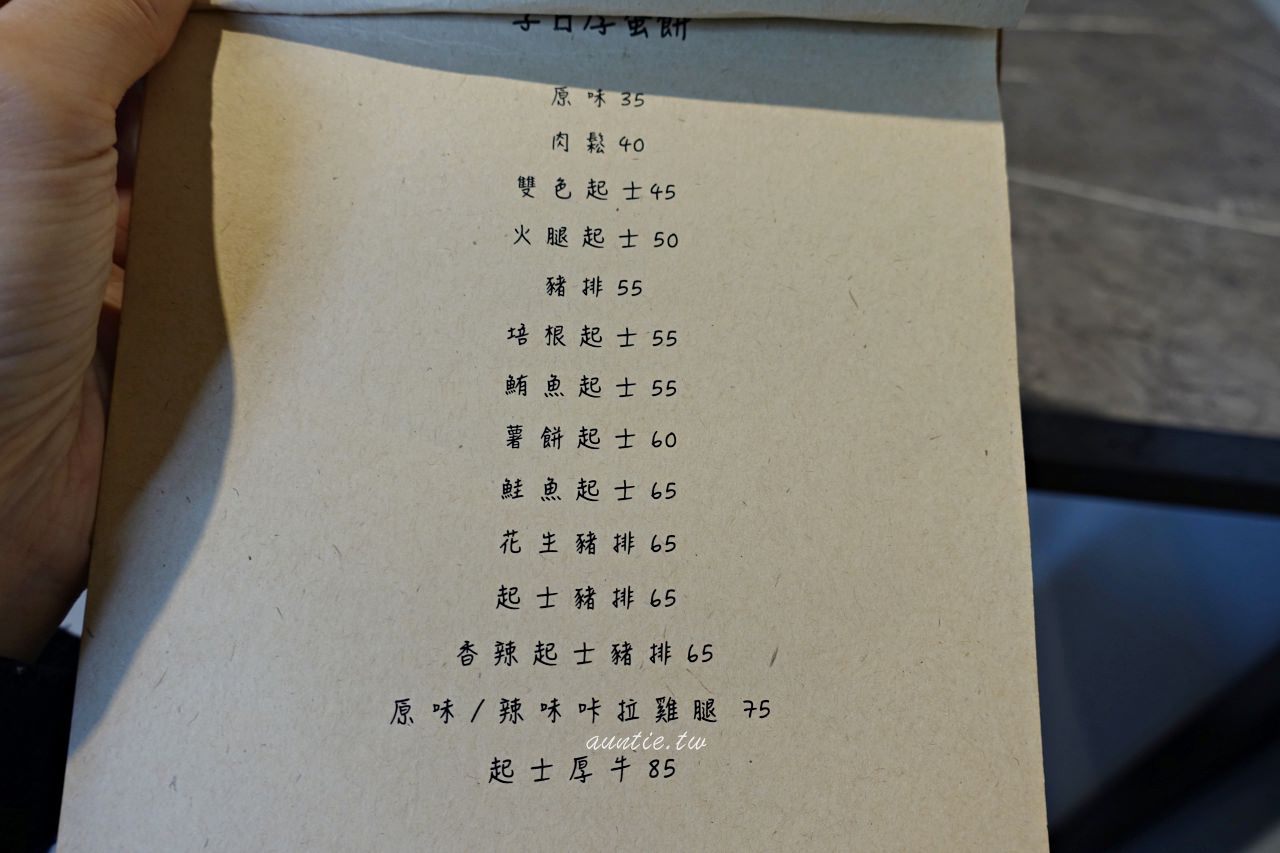 厚蛋餅
原味 35
肉鬆 40
雙色起士 45
火腿起士 50
豬排 55
培根起士 55
鮪魚起士 55
薯餅起士 60
鮭魚起士 65
花生豬排 65
起士豬排 65
香辣起士豬排 65
原味/辣味咔拉雞腿 75
auntie.tw
起士厚牛 85